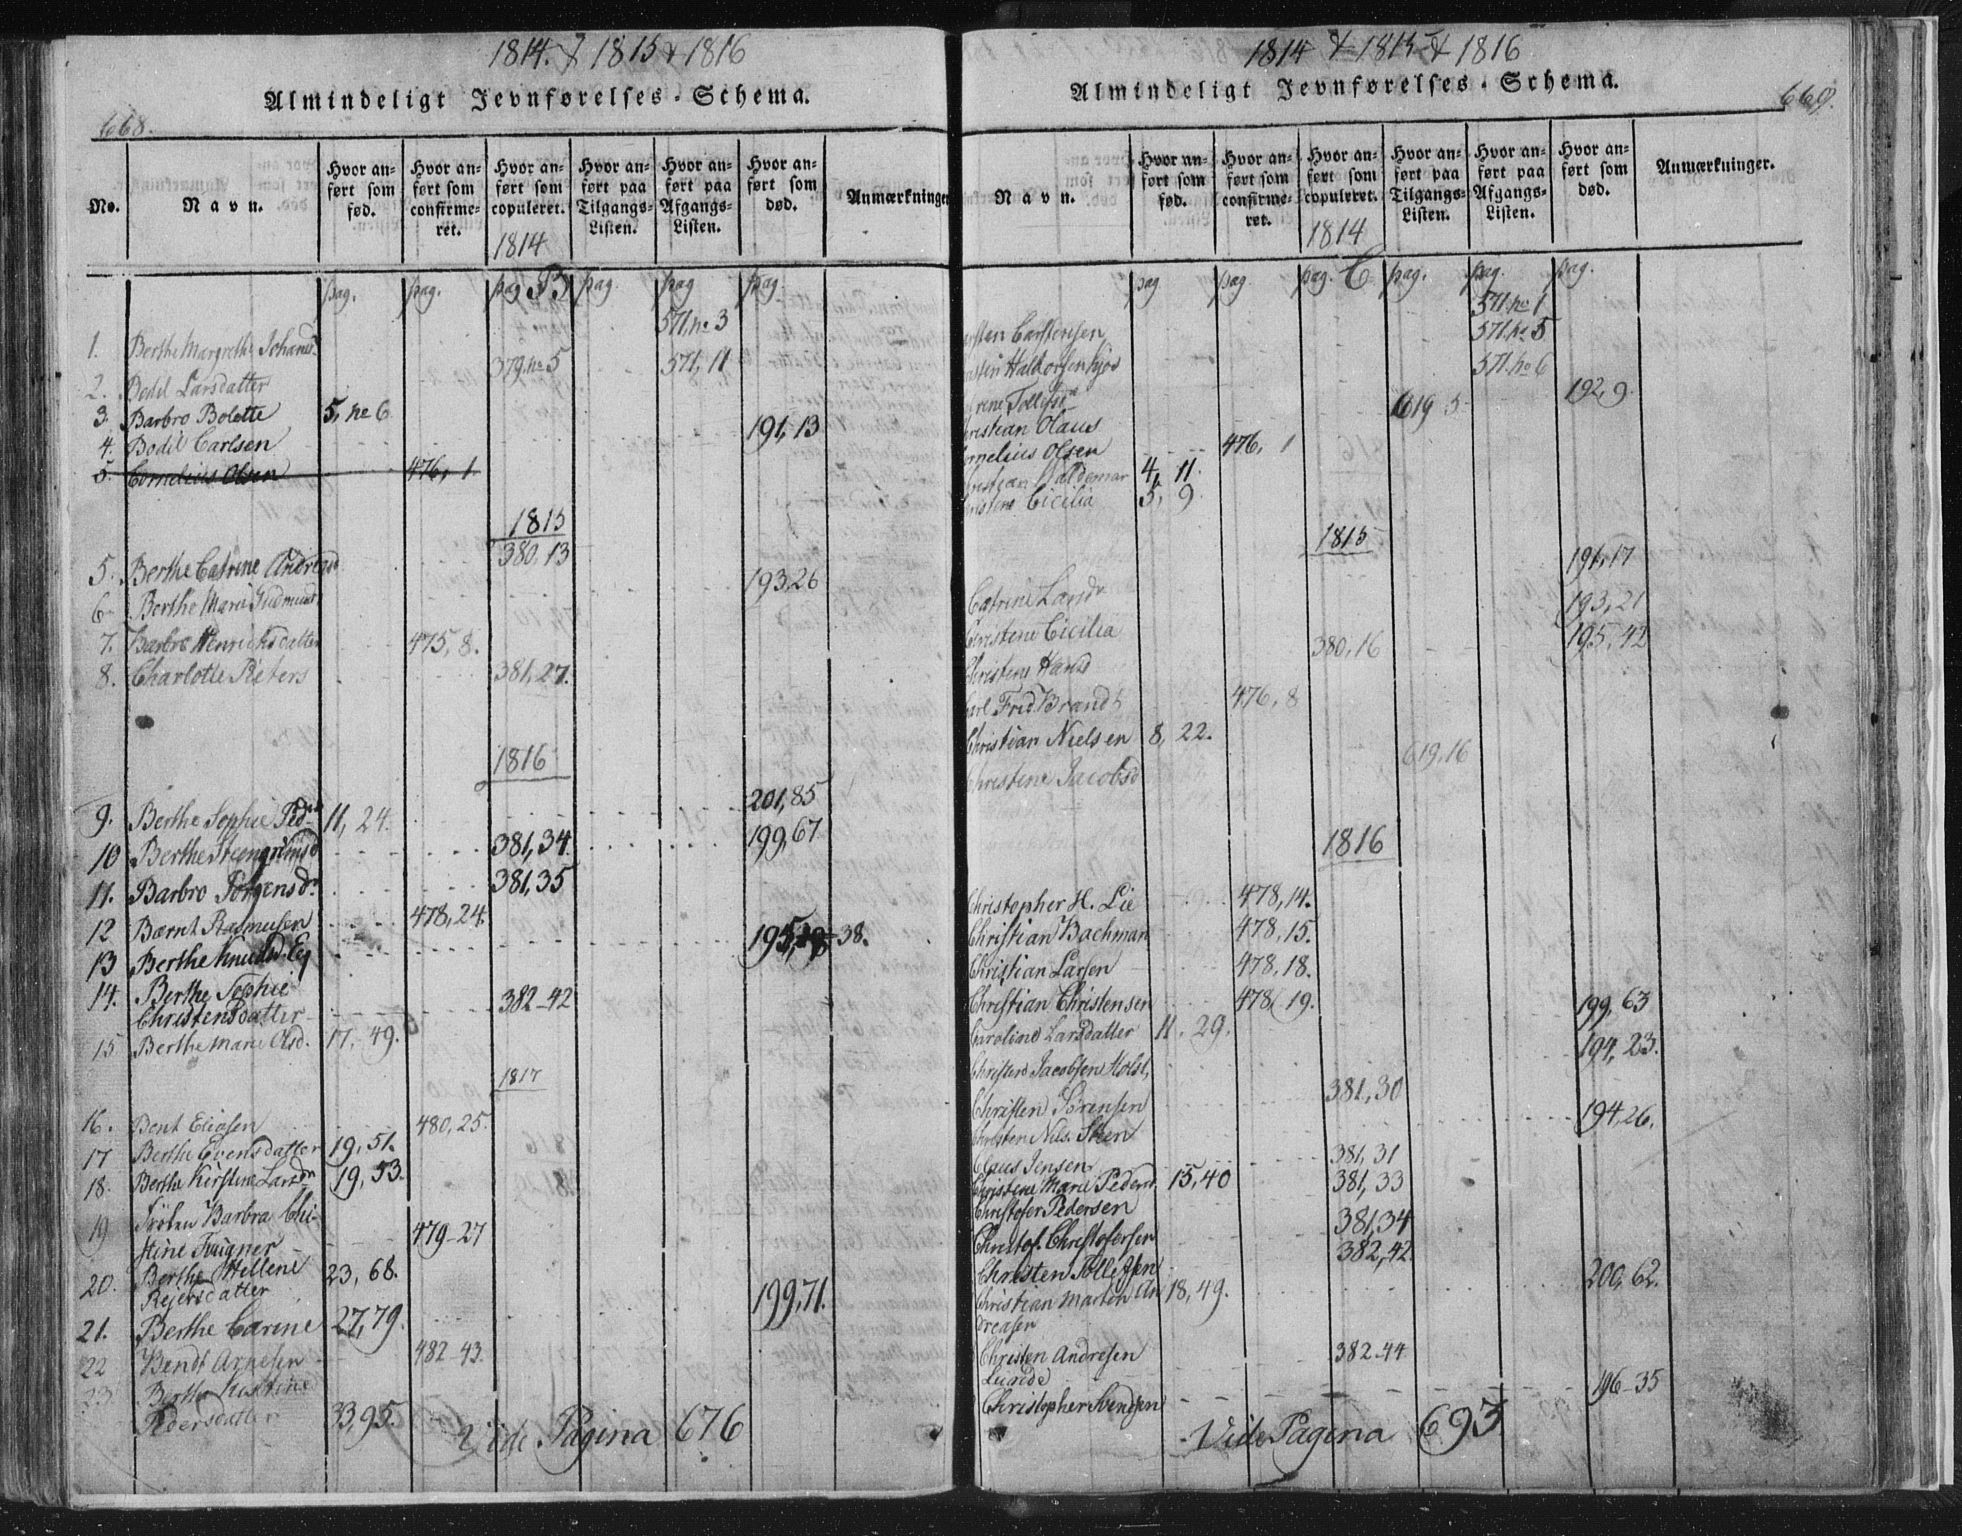 1814. & 1815 & 1816
Almindeligt Jevnførelses-Schema.
668.
No.
Navn.
Hvor anført som fød.
Hvor anført som confirmeret.
Hvor anført som copuleret.
Hvor anført paa Tilgangs-Listen.
Hvor anført paa Afgangs-Listen.
Hvor anført som død.
Anmærkninger
1814
B
pag. pag. pag pag. pag pag.
571.no 3
1. Berthe Margrethe Johanns
379.no 5 571, 11
2. Bodil Larsdatter
3. Barbro Bolette 5, no 6
4. Bodil Carlsen 191, 13
5. Cornelius Olsen 476, 1.
1815
5. Berthe Catrine Andreasd 380, 13
6. Berthe Marie Gudmunds 193,26
7. Barbro Henrichsdatter 475, 8.
8. Charlotte Pieters 381,27.
1816
9. Berthe Sophie Pedr 11, 24. 201,85
10 Berthe Steengrimsd 381,34. 199,67
11. Barbro Jørgensdr 381,35
12 Bærnt Rasmusen 478,24.
13 Berthe Knudsd. Eg 195, 38.
14. Berthe Sophie
Christensdatter 382-42
15 Berthe Marie Olsd. 17, 49.
1817
16. Bent Eliasen 480,25.
17 Berthe Evensdatter 19, 51.
18. Berthe Kirstine Larsdr 19, 53.
19 Frøken Barbra Chri-
stine Traigner 479-27
20. Berthe Hellene 23, 68.
Rejersdatter 199,71.
21. Berthe Carine 27,79.
22 Bendt Arnesen 482-43.
23 Berthe Kirstine
Pedersdatter 33,95.
Vide Pagina 676
1814 & 1815 & 1816
Almindeligt Jevnførelses-Schema.
669.
Navn.
Hvor anført som fød.
Hvor anført som confirmeret.
Hvor anført som copuleret.
Hvor anført paa Tilgangs-Listen.
Hvor anført paa Afgangs-Listen.
Hvor anført som død.
Anmærkninger.
1814
C
pag pag. pag. pag. pag. pag.
571.no 1
Carstensen 571.no 5
571.no 6
192,9
Olaus 619 5
Olsen 476, 1
Waldemar 4, 11.
Cicilia 5, 9.
1815
191,17
Catrine Larsdr 193,21
Christene Cicilia 195,42
Christens Hansd 380,16
Carl Frid Brandt 476,8
Christian Nielsen 8, 22.
Christine Jacobsd 619,16
1816
Christopher H. Lie 478,14.
Christian Bachman 478,15.
Christian Larsen 478,18.
Christian Christensen 478, 19. 199, 63
Caroline Larsdatter 11. 29. 194, 23.
Christen Jacobsen Holst,
Christen Sørensen 381,30
Christen Nils. Steen 194,26.
Claus Jensen 381,31
Christene Marie Pedersd. 15,40 381,33
Christofer Pedersen 381,34
Christof. Christofersen 382,42
Christen Tollefsen 200, 62.
Christian Martin An 18, 49.
dreasen
Christen Andresen 382-44
Christopher Svendsen 196-35
Vide Pagina 693